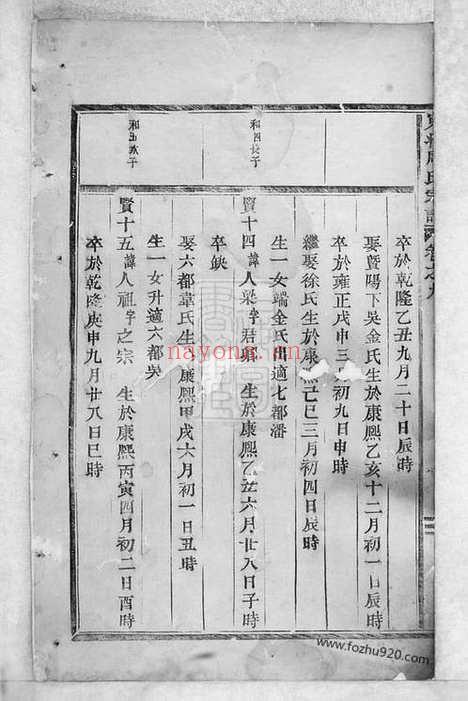 卒於乾隆乙丑九月二十日辰時
娶暨陽下吳金氏生於康熙乙亥十二月初一日辰時
卒於雍正戊申三月初九日申時
繼娶徐氏生於康熙己巳三月初四日辰時
生一女端金氏出適七都潘
賢十四諱人梁字君鄉 生於康熙乙丑六月廿八日子時
卒缺
娶六都韋氏生於康熙甲戌六月初一日丑時
生一女升適六都吳
賢十五諱人祖字之宗 生於康熙丙寅四月初二日酉時
卒於乾隆庚申九月廿八日巳時
nayong.com
www.fozhu920.com